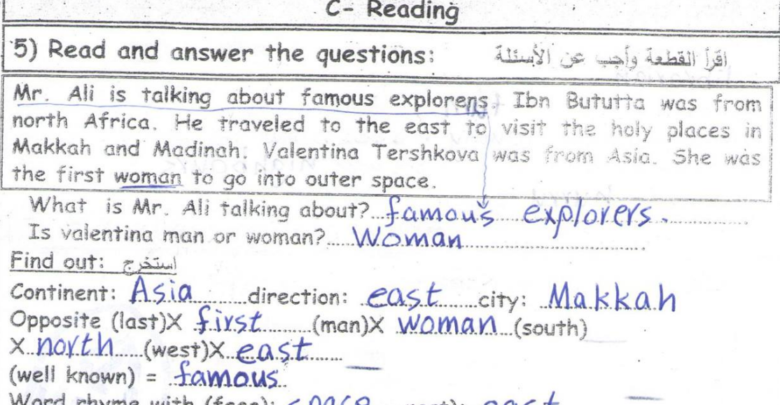 C- Reading
5) Read and answer the questions: اقرأ القطعة وأجب عن الأسئلة
Mr. Ali is talking about famous explorens. Ibn Bututta was from
north Africa. He traveled to the east to visit the holy places in
Makkah and Madinah. Valentina Tershkova was from Asia. She was
the first woman to go into outer space.
What is Mr. Ali talking about?...famous explorers.
Is valentina man or woman?....Woman
Find out: استخرج
Continent: Asia........direction: .east......city: .Makkah
Opposite (last)X first.......(man)X woman..(south)
X..north....(west)X..east......
(well known) = .famous..
Word rhyme with (face): space east